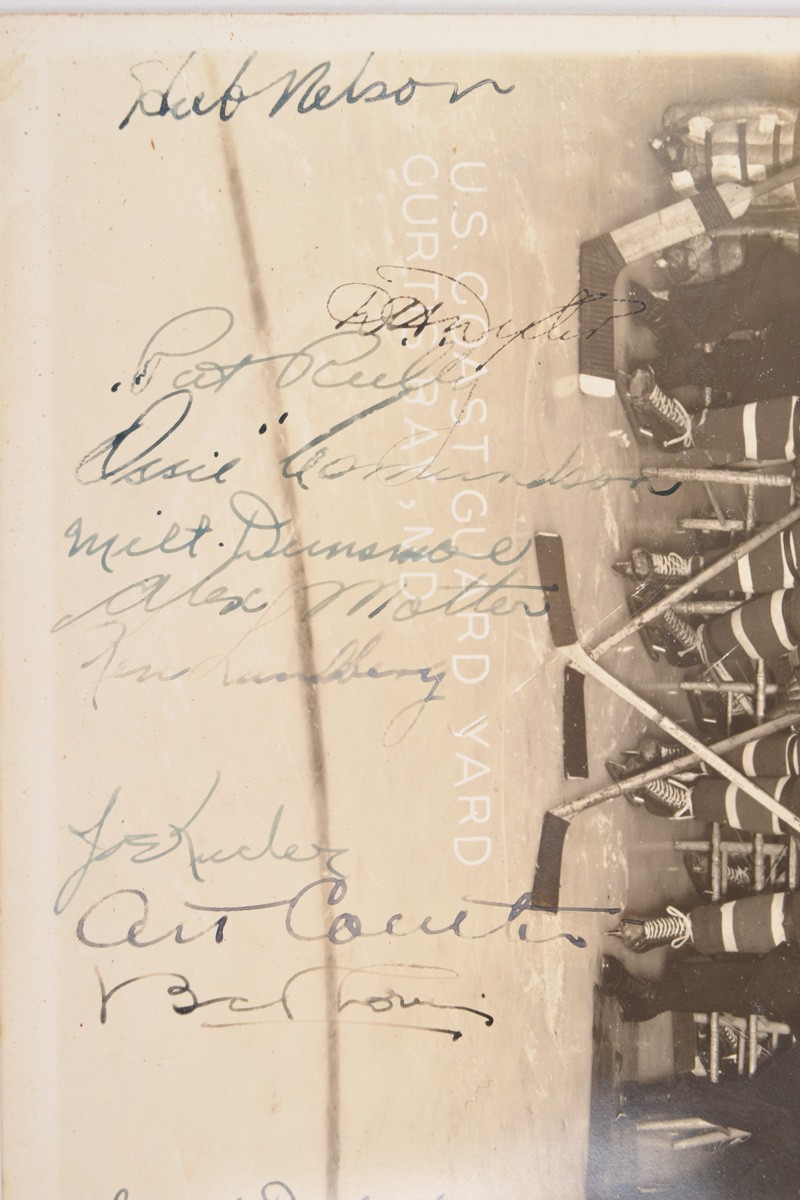 Hub Nelson
Pat Reilly
"Ossie" Asmundson
Milt. Dunsmore
Alex Motter
Ken Lundberg
Joe Kucler
Art Coulter
Bob
U.S. COAST GUARD YARD
CURTIS BAY, MD.